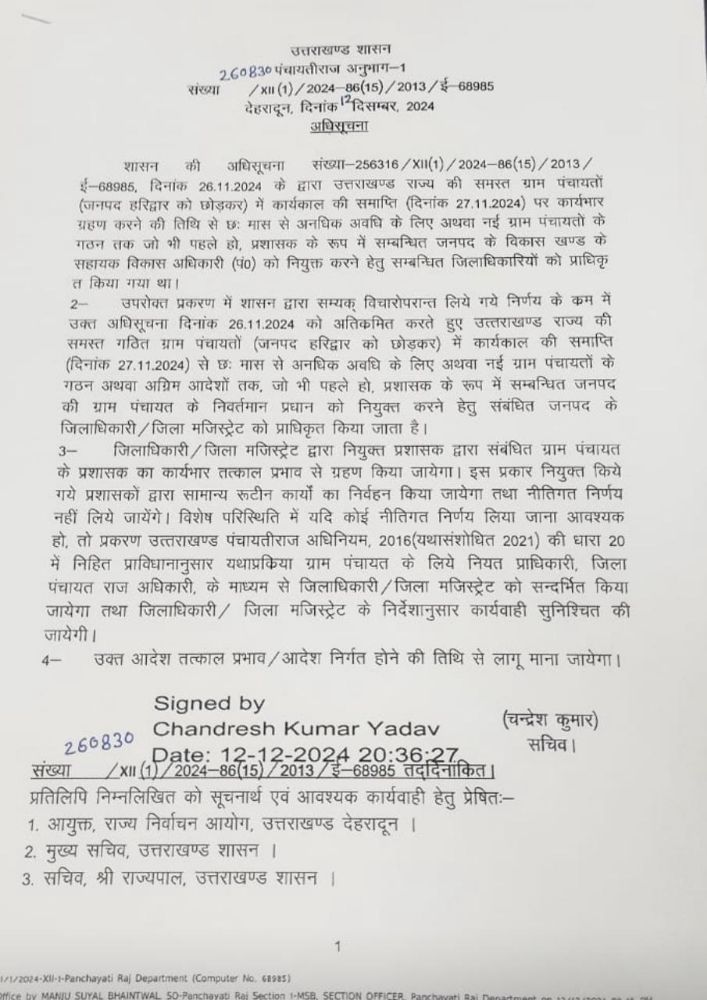 उत्तराखण्ड शासन
260830 पंचायतीराज अनुभाग–1
संख्या /XII(1)/2024–86(15)/2013/ई–68985
देहरादून, दिनांक 12 दिसम्बर, 2024
अधिसूचना
शासन की अधिसूचना संख्या–256316/XII(1)/2024–86(15)/2013/
ई–68985, दिनांक 26.11.2024 के द्वारा उत्तराखण्ड राज्य की समस्त ग्राम पंचायतों
(जनपद हरिद्वार को छोड़कर) में कार्यकाल की समाप्ति (दिनांक 27.11.2024) पर कार्यभार
ग्रहण करने की तिथि से छः मास से अनधिक अवधि के लिए अथवा नई ग्राम पंचायतों के
गठन तक जो भी पहले हो, प्रशासक के रूप में सम्बन्धित जनपद के विकास खण्ड के
सहायक विकास अधिकारी (पं0) को नियुक्त करने हेतु सम्बन्धित जिलाधिकारियों को प्राधिकृ
त किया गया था।
2– उपरोक्त प्रकरण में शासन द्वारा सम्यक् विचारोपरान्त लिये गये निर्णय के कम में
उक्त अधिसूचना दिनांक 26.11.2024 को अतिकमित करते हुए उत्तराखण्ड राज्य की
समस्त गठित ग्राम पंचायतों (जनपद हरिद्वार को छोड़कर) में कार्यकाल की समाप्ति
(दिनांक 27.11.2024) से छः मास से अनधिक अवधि के लिए अथवा नई ग्राम पंचायतों के
गठन अथवा अग्रिम आदेशों तक, जो भी पहले हो, प्रशासक के रूप में सम्बन्धित जनपद
की ग्राम पंचायत के निवर्तमान प्रधान को नियुक्त करने हेतु संबंधित जनपद के
जिलाधिकारी/जिला मजिस्ट्रेट को प्राधिकृत किया जाता है।
3– जिलाधिकारी/जिला मजिस्ट्रेट द्वारा नियुक्त प्रशासक द्वारा संबंधित ग्राम पंचायत
के प्रशासक का कार्यभार तत्काल प्रभाव से ग्रहण किया जायेगा। इस प्रकार नियुक्त किये
गये प्रशासकों द्वारा सामान्य रूटीन कार्यों का निर्वहन किया जायेगा तथा नीतिगत निर्णय
नहीं लिये जायेंगे। विशेष परिस्थिति में यदि कोई नीतिगत निर्णय लिया जाना आवश्यक
हो, तो प्रकरण उत्तराखण्ड पंचायतीराज अधिनियम, 2016(यथासंशोधित 2021) की धारा 20
में निहित प्राविधानानुसार यथाप्रकिया ग्राम पंचायत के लिये नियत प्राधिकारी, जिला
पंचायत राज अधिकारी, के माध्यम से जिलाधिकारी/जिला मजिस्ट्रेट को सन्दर्भित किया
जायेगा तथा जिलाधिकारी/ जिला मजिस्ट्रेट के निर्देशानुसार कार्यवाही सुनिश्चित की
जायेगी।
4– उक्त आदेश तत्काल प्रभाव/आदेश निर्गत होने की तिथि से लागू माना जायेगा।
Signed by
Chandresh Kumar Yadav
Date: 12-12-2024 20:36:27
(चन्द्रेश कुमार)
सचिव।
260830
संख्या /XII(1)/2024–86(15)/2013/ई–68985 तद्दिनांकित।
प्रतिलिपि निम्नलिखित को सूचनार्थ एवं आवश्यक कार्यवाही हेतु प्रेषितः–
1. आयुक्त, राज्य निर्वाचन आयोग, उत्तराखण्ड देहरादून ।
2. मुख्य सचिव, उत्तराखण्ड शासन ।
3. सचिव, श्री राज्यपाल, उत्तराखण्ड शासन ।
1
1/1/2024-XII-1-Panchayati Raj Department (Computer No. 68985)
office by MANJU SUYAL BHAINTWAL, SO-Panchayati Raj Section 1-MSB, SECTION OFFICER, Panchayati Raj Department on